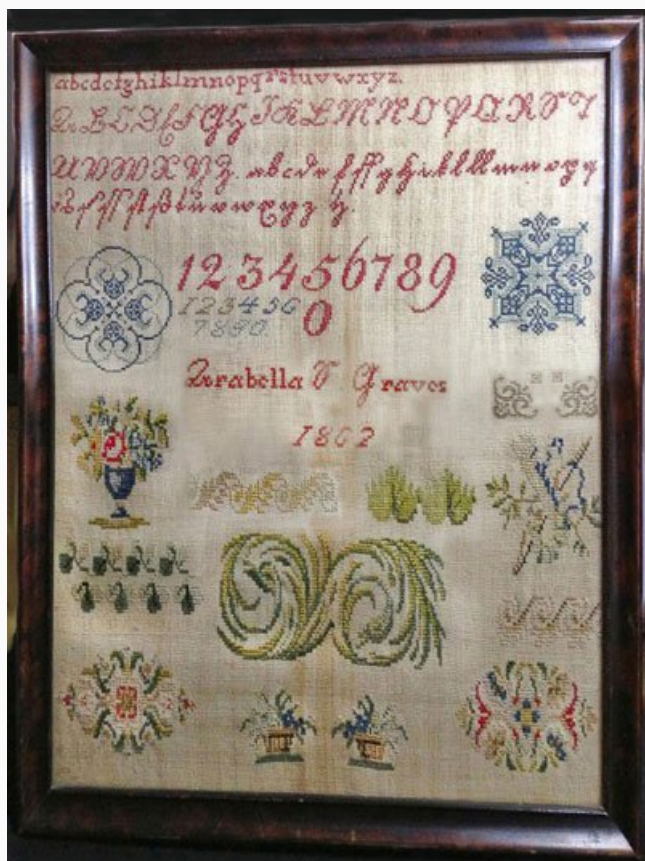 abcdefghiklmnopqrstuvwxyz.
A B C D E F G H I K L M N O P Q R S T
U V W X Y Z. a b c d e f ff g h i k l ll m n o p q
r s ſ ſſ ſt ß t u v w x y z
1 2 3 4 5 6 7 8 9
1 2 3 4 5 6 0
7 8 9 0.
Arabella S Graves
1862